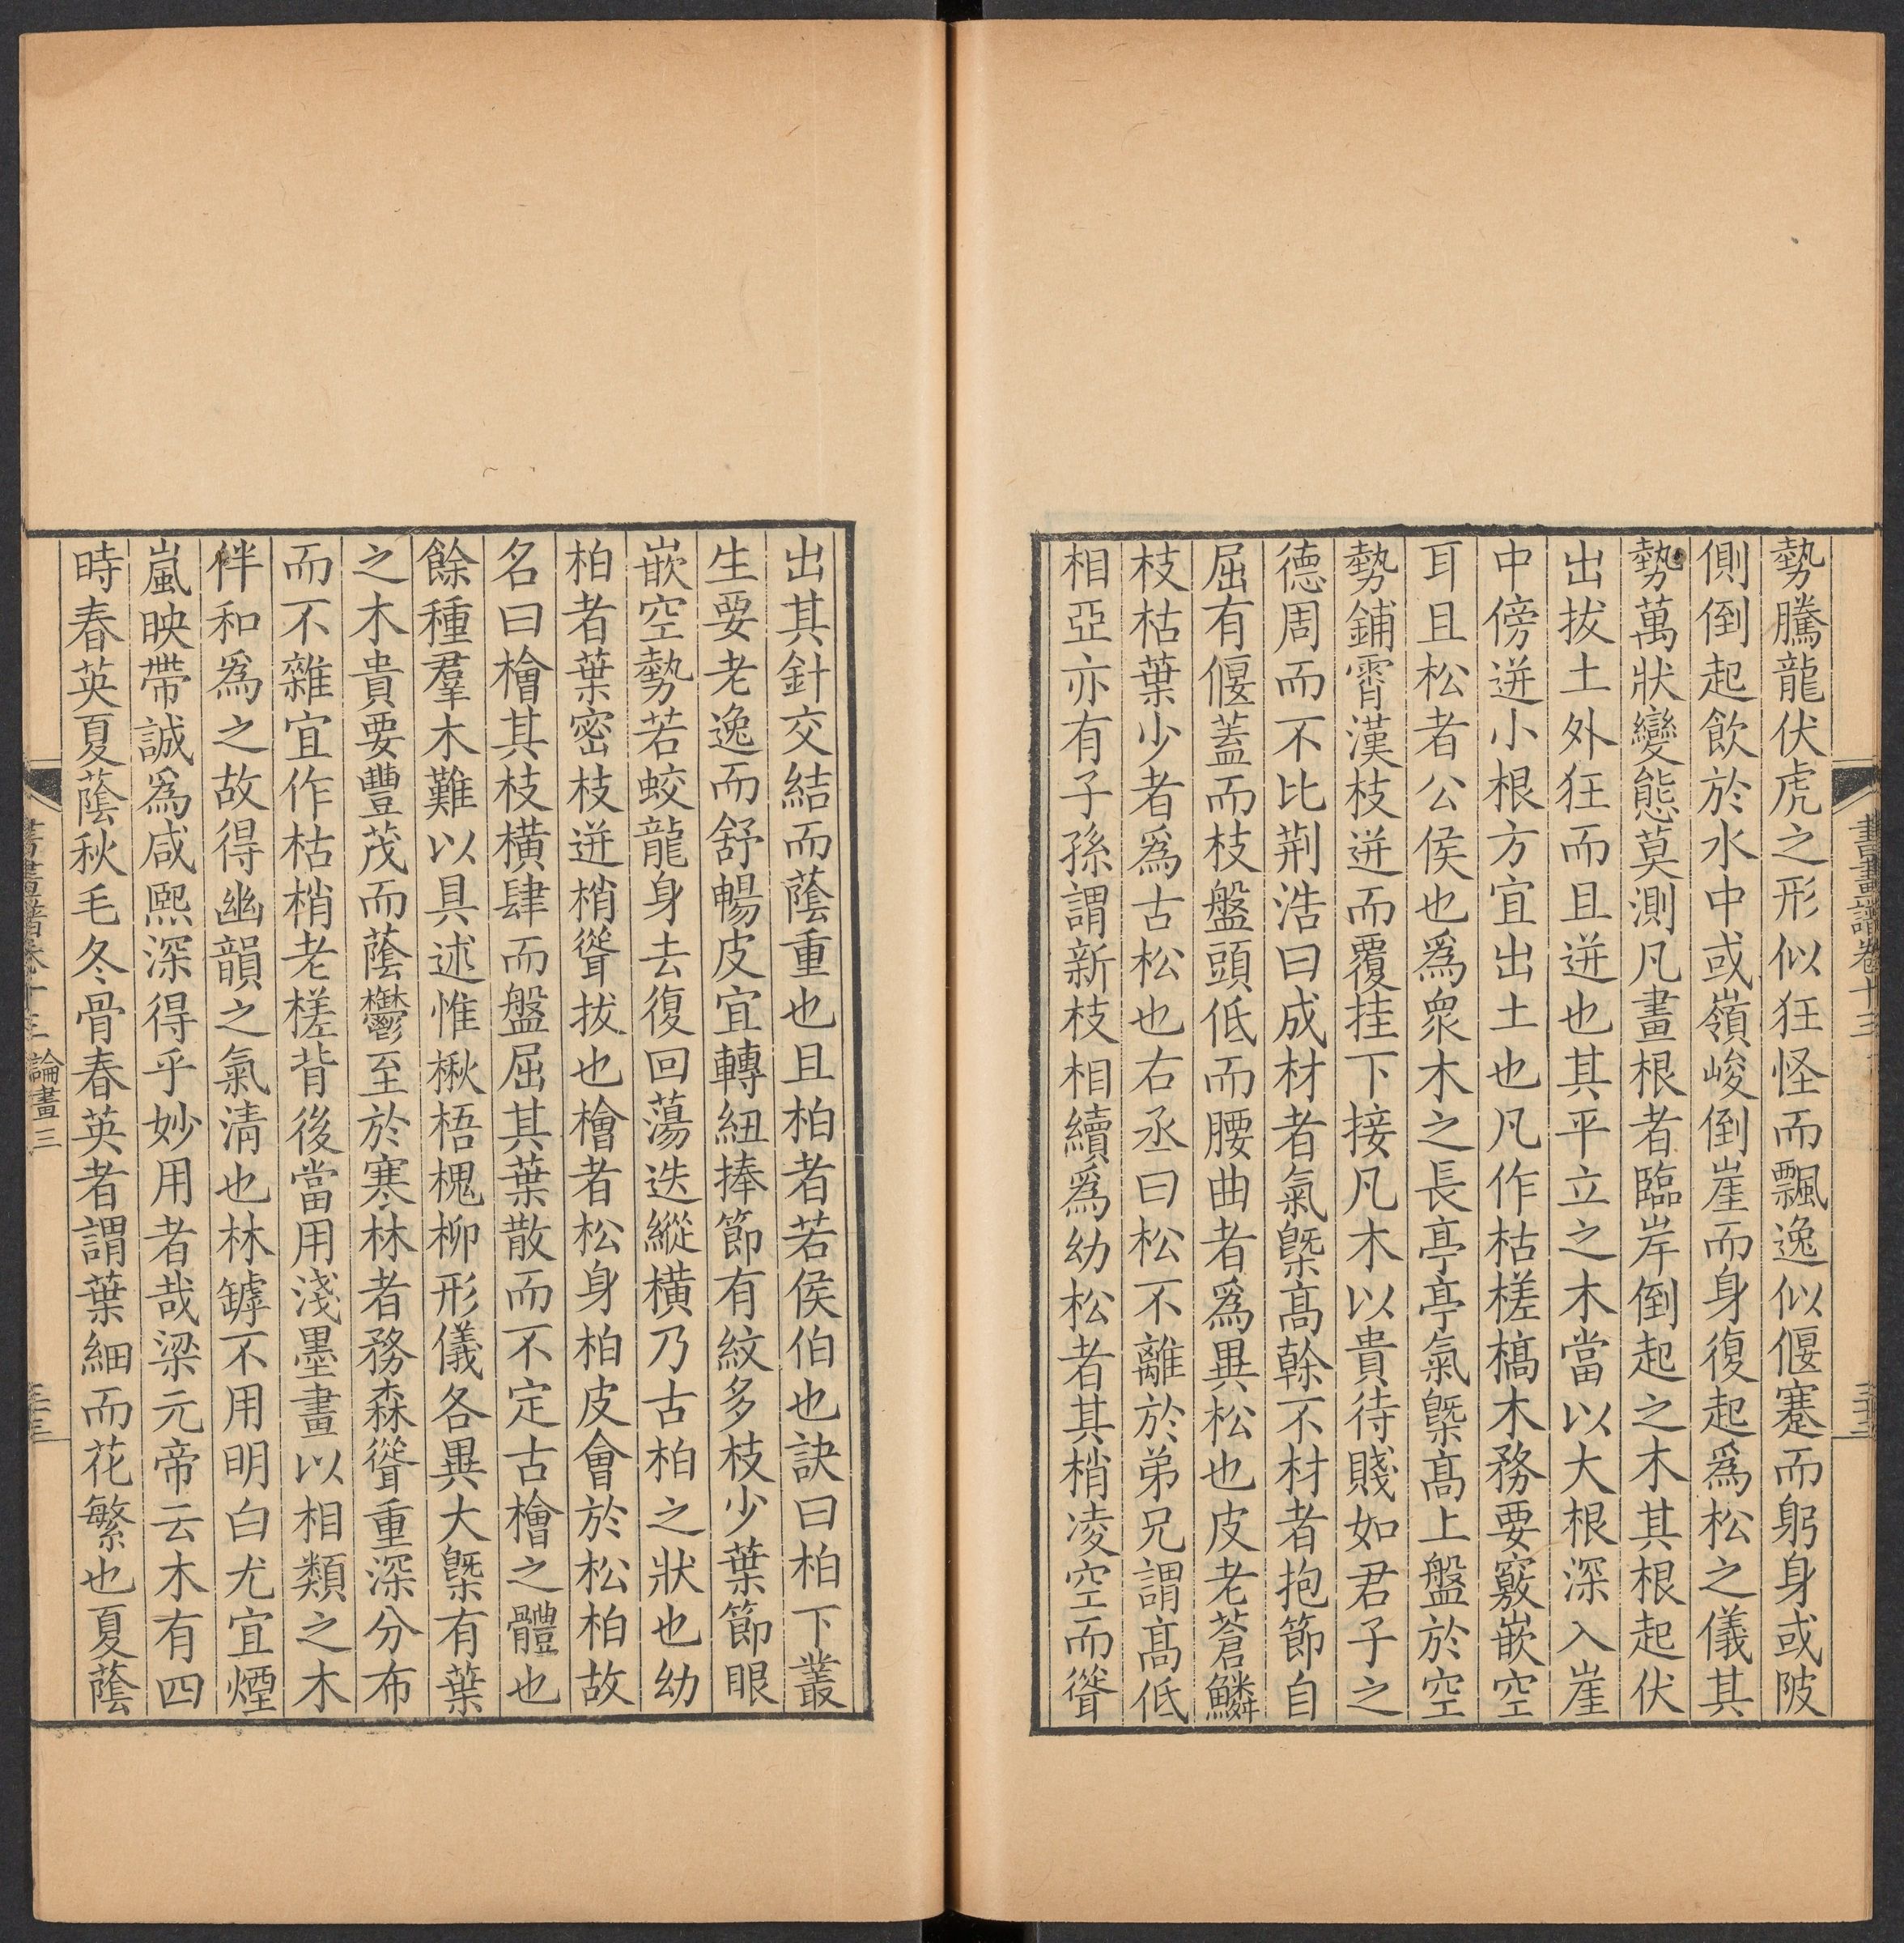 勢騰龍伏虎之形似狂怪而飄逸似偃蹇而躬身或陂
側倒起飲於水中或嶺峻倒崖而身復起爲松之儀其
勢萬狀變態莫測凡畫根者臨岸倒起之木其根起伏
出拔土外狂而且迸也其平立之木當以大根深入崖
中傍迸小根方宜出土也凡作枯槎槁木務要竅嵌空
耳且松者公侯也爲衆木之長亭亭氣槩高上盤於空
勢鋪霄漢枝迸而覆挂下接凡木以貴待賤如君子之
德周而不比荆浩曰成材者氣槩高榦不材者抱節自
屈有偃蓋而枝盤頭低而腰曲者爲異松也皮老蒼鱗
枝枯葉少者爲古松也右丞曰松不離於弟兄謂高低
相亞亦有子孫謂新枝相續爲幼松者其梢凌空而聳
書畫譜卷十三
出其針交結而蔭重也且柏者若侯伯也訣曰柏下叢
生要老逸而舒暢皮宜轉紐捧節有紋多枝少葉節眼
嵌空勢若蛟龍身去復回蕩迭縱橫乃古柏之狀也幼
柏者葉密枝迸梢聳拔也檜者松身柏皮會於松柏故
名曰檜其枝橫肆而盤屈其葉散而不定古檜之體也
餘種羣木難以具述惟楸梧槐柳形儀各異大槩有葉
之木貴要豐茂而蔭鬱至於寒林者務森聳重深分布
而不雜宜作枯梢老槎背後當用淺墨畫以相類之木
伴和爲之故得幽韻之氣清也林罅不用明白尤宜煙
嵐映帶誠爲咸熙深得乎妙用者哉梁元帝云木有四
時春英夏蔭秋毛冬骨春英者謂葉細而花繁也夏蔭
書畫譜卷十三 論畫三